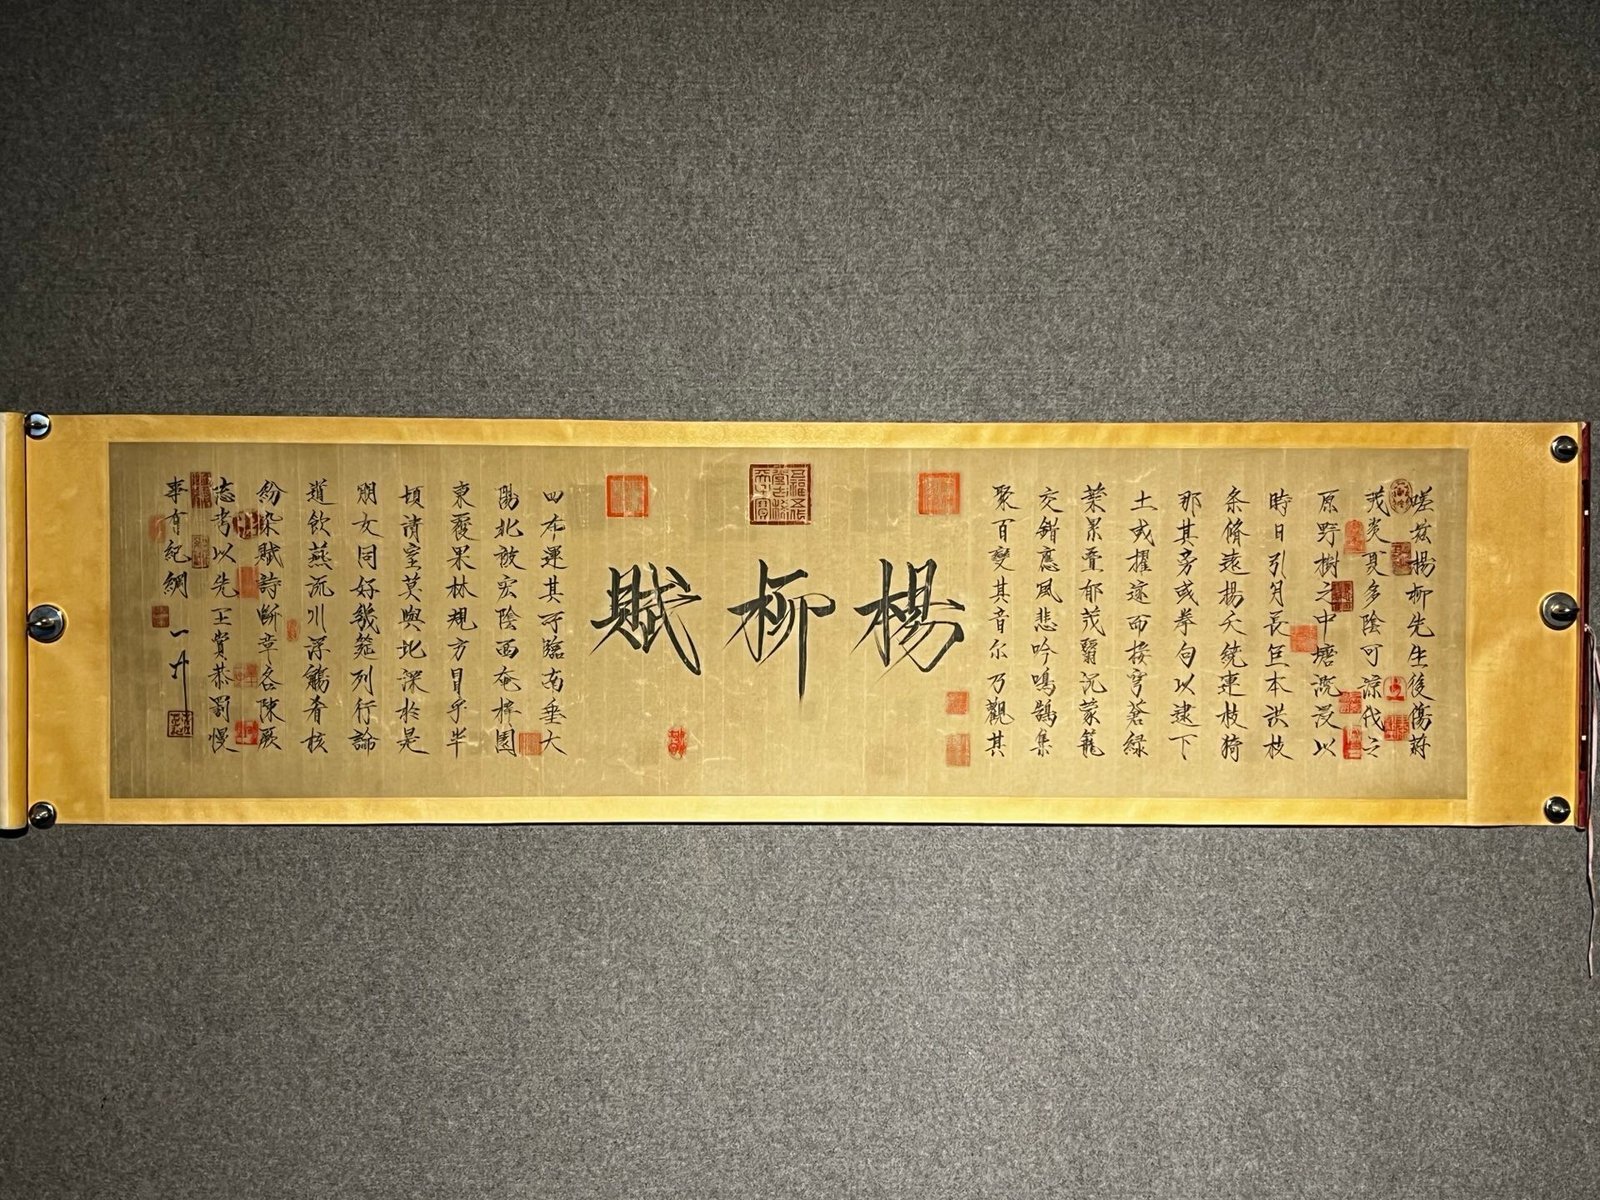 嗟茲楊柳先生後傷蔚
茂炎夏多陰可涼伐之
原野樹之中塘溉浸以
時日引月長巨本洪枝
條脩遠揚夭繞連枝猗
那其旁或拳句以逮下
土或擢邃而接穹蒼綠
葉累疊郁茂翳沉蒙籠
交錯應風悲吟鳴鵠集
聚百變其音尔乃觀其
楊柳賦
四布運其所臨南垂大
陽北被宏陰西奄梓園
東覆果林規方冒乎半
頃清室莫與比深於是
朋友同好幾筵列行論
道飲燕流川浮觴肴核
紛染賦詩斷章各陳厥
志考以先王賞恭罰慢
事有紀綱